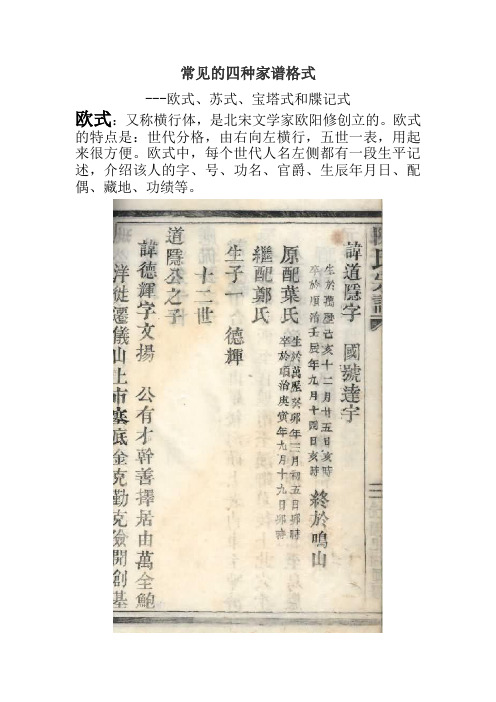 常见的四种家谱格式
---欧式、苏式、宝塔式和牒记式
欧式：又称横行体，是北宋文学家欧阳修创立的。欧式
的特点是：世代分格，由右向左横行，五世一表，用起
来很方便。欧式中，每个世代人名左侧都有一段生平记
述，介绍该人的字、号、功名、官爵、生辰年月日、配
偶、藏地、功绩等。
諱道隱字 國號達宇
生於萬歷己亥十二月廿五日亥時
卒於順治壬辰年九月十四日亥時
終於鳴山
原配葉氏
生於萬歷癸卯年三月初五日卯時
卒於順治庚寅年九月十九日卯時
繼配鄭氏
生子一 德輝
十二世
道隱公之子
諱德輝字文揚 公有才幹善擇居由萬全鮑
洋徙遷儀山上市寨底金克勤克儉開創基